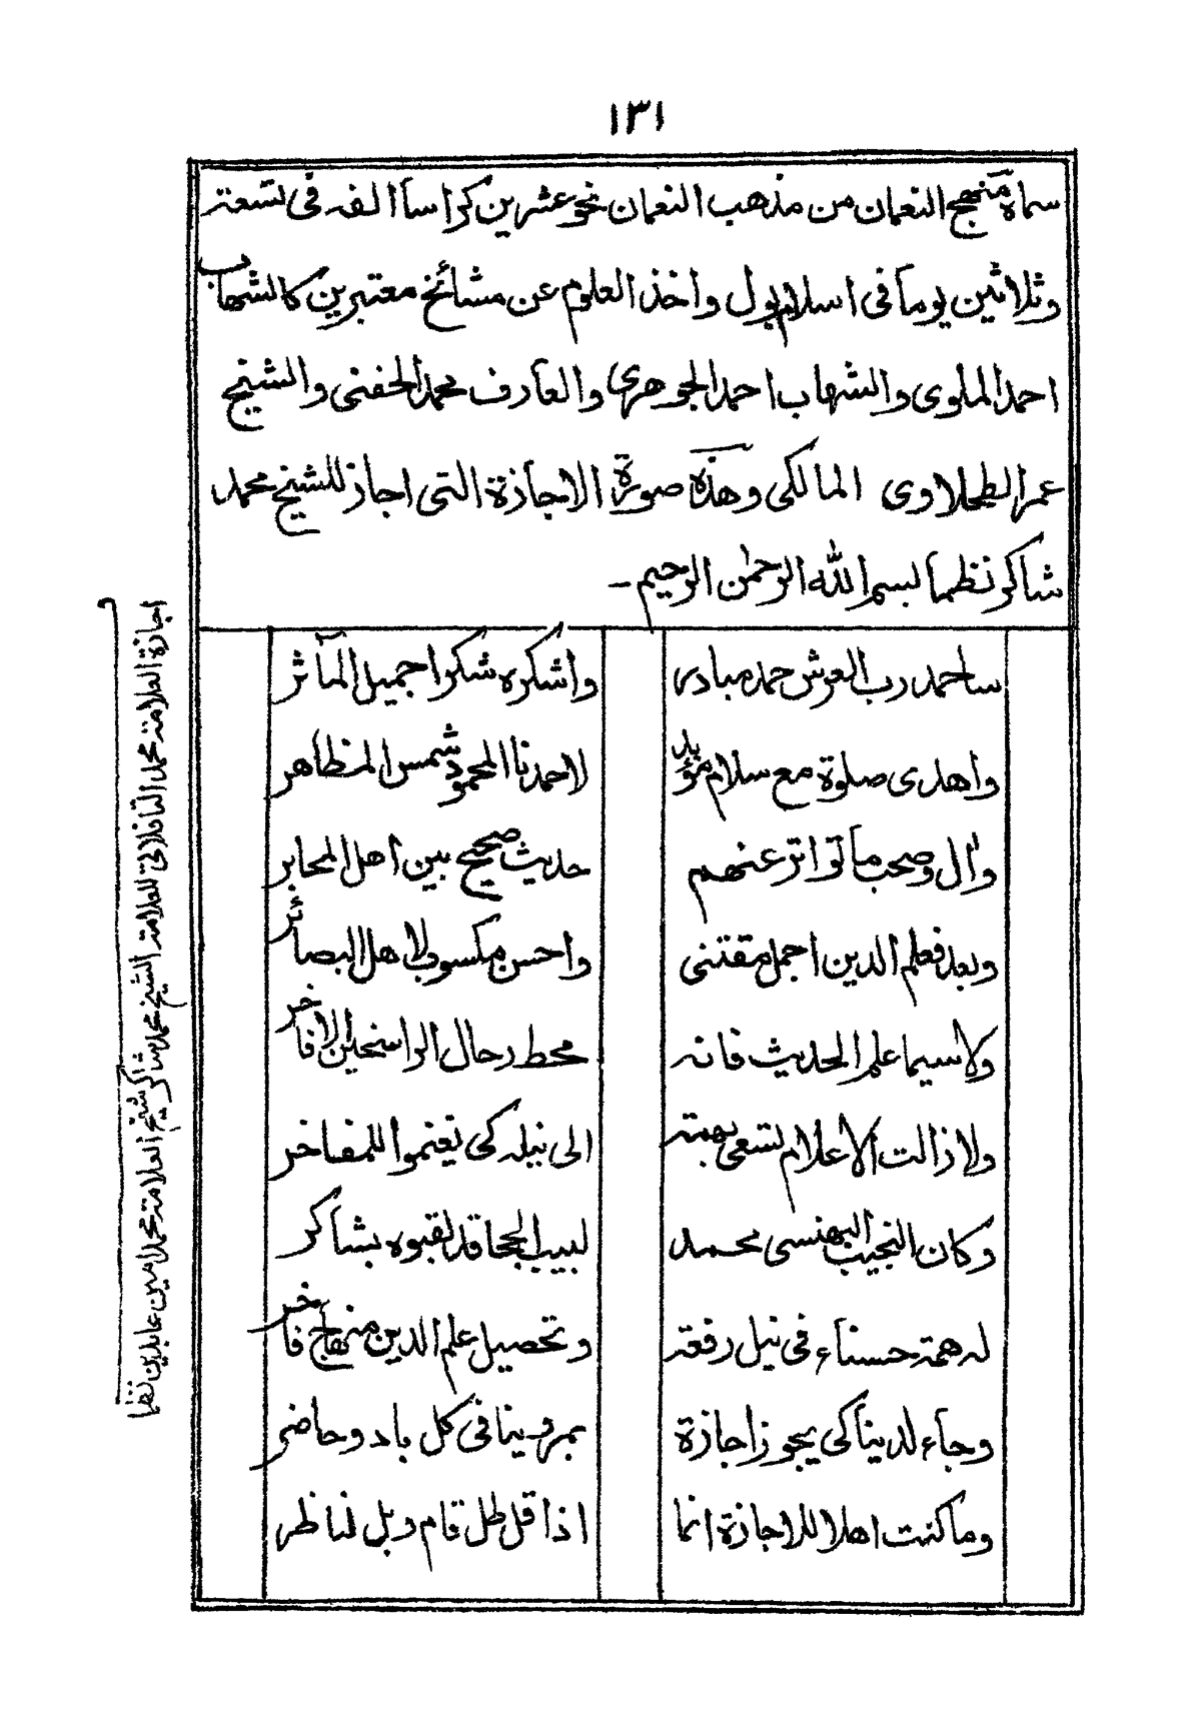 ١٣١
سماه منهج النعمان من مذهب النعمان نحو عشرين كراسا الفه فى تسعة
وثلاثين يوما فى اسلامبول واخذ العلوم عن مشائخ معتبرين كالشهاب
احمد الملوى والشهاب احمد الجوهرى والعارف محمد الحفنى والشيخ
عمر الطحلاوى المالكى وهذه صورة الاجازة التى اجاز للشيخ محمد
شاكر نظما بسم الله الرحمٰن الرحيم ـ
ساحمد رب العرش حمد مبادر واشكره شكرا جميل المآثر
واهدى صلوة مع سلام مؤبد لاحمدنا المحمود شمس المظاهر
وآل وصحب ما تواتر عنهم حديث صحيح بين اهل المحابر
وبعد فعلم الدين اجمل مقتنى واحسن مكسوب لاهل البصائر
ولا سيما علم الحديث فانه محط رحال الراسخين الافاخر
ولا زالت الاعلام تسعى بهمة الى نيله كى يغنموا للمفاخر
وكان النجيب البهنسى محمد لبيب الحجا قد لقبوه بشاكر
له همة حسناء فى نيل رفعة وتحصيل علم الدين منهاج فاخر
وجاء لدينا كى يجوز اجازة بمروينا فى كل باد وحاضر
وما كنت اهلا للاجازة انما اذا قل طل قام وبل لناظر
اجازة العلامة محمد التافلاتى للعلامة الشيخ محمد شاكر شيخ العلامة محمد امين عابدين نظما